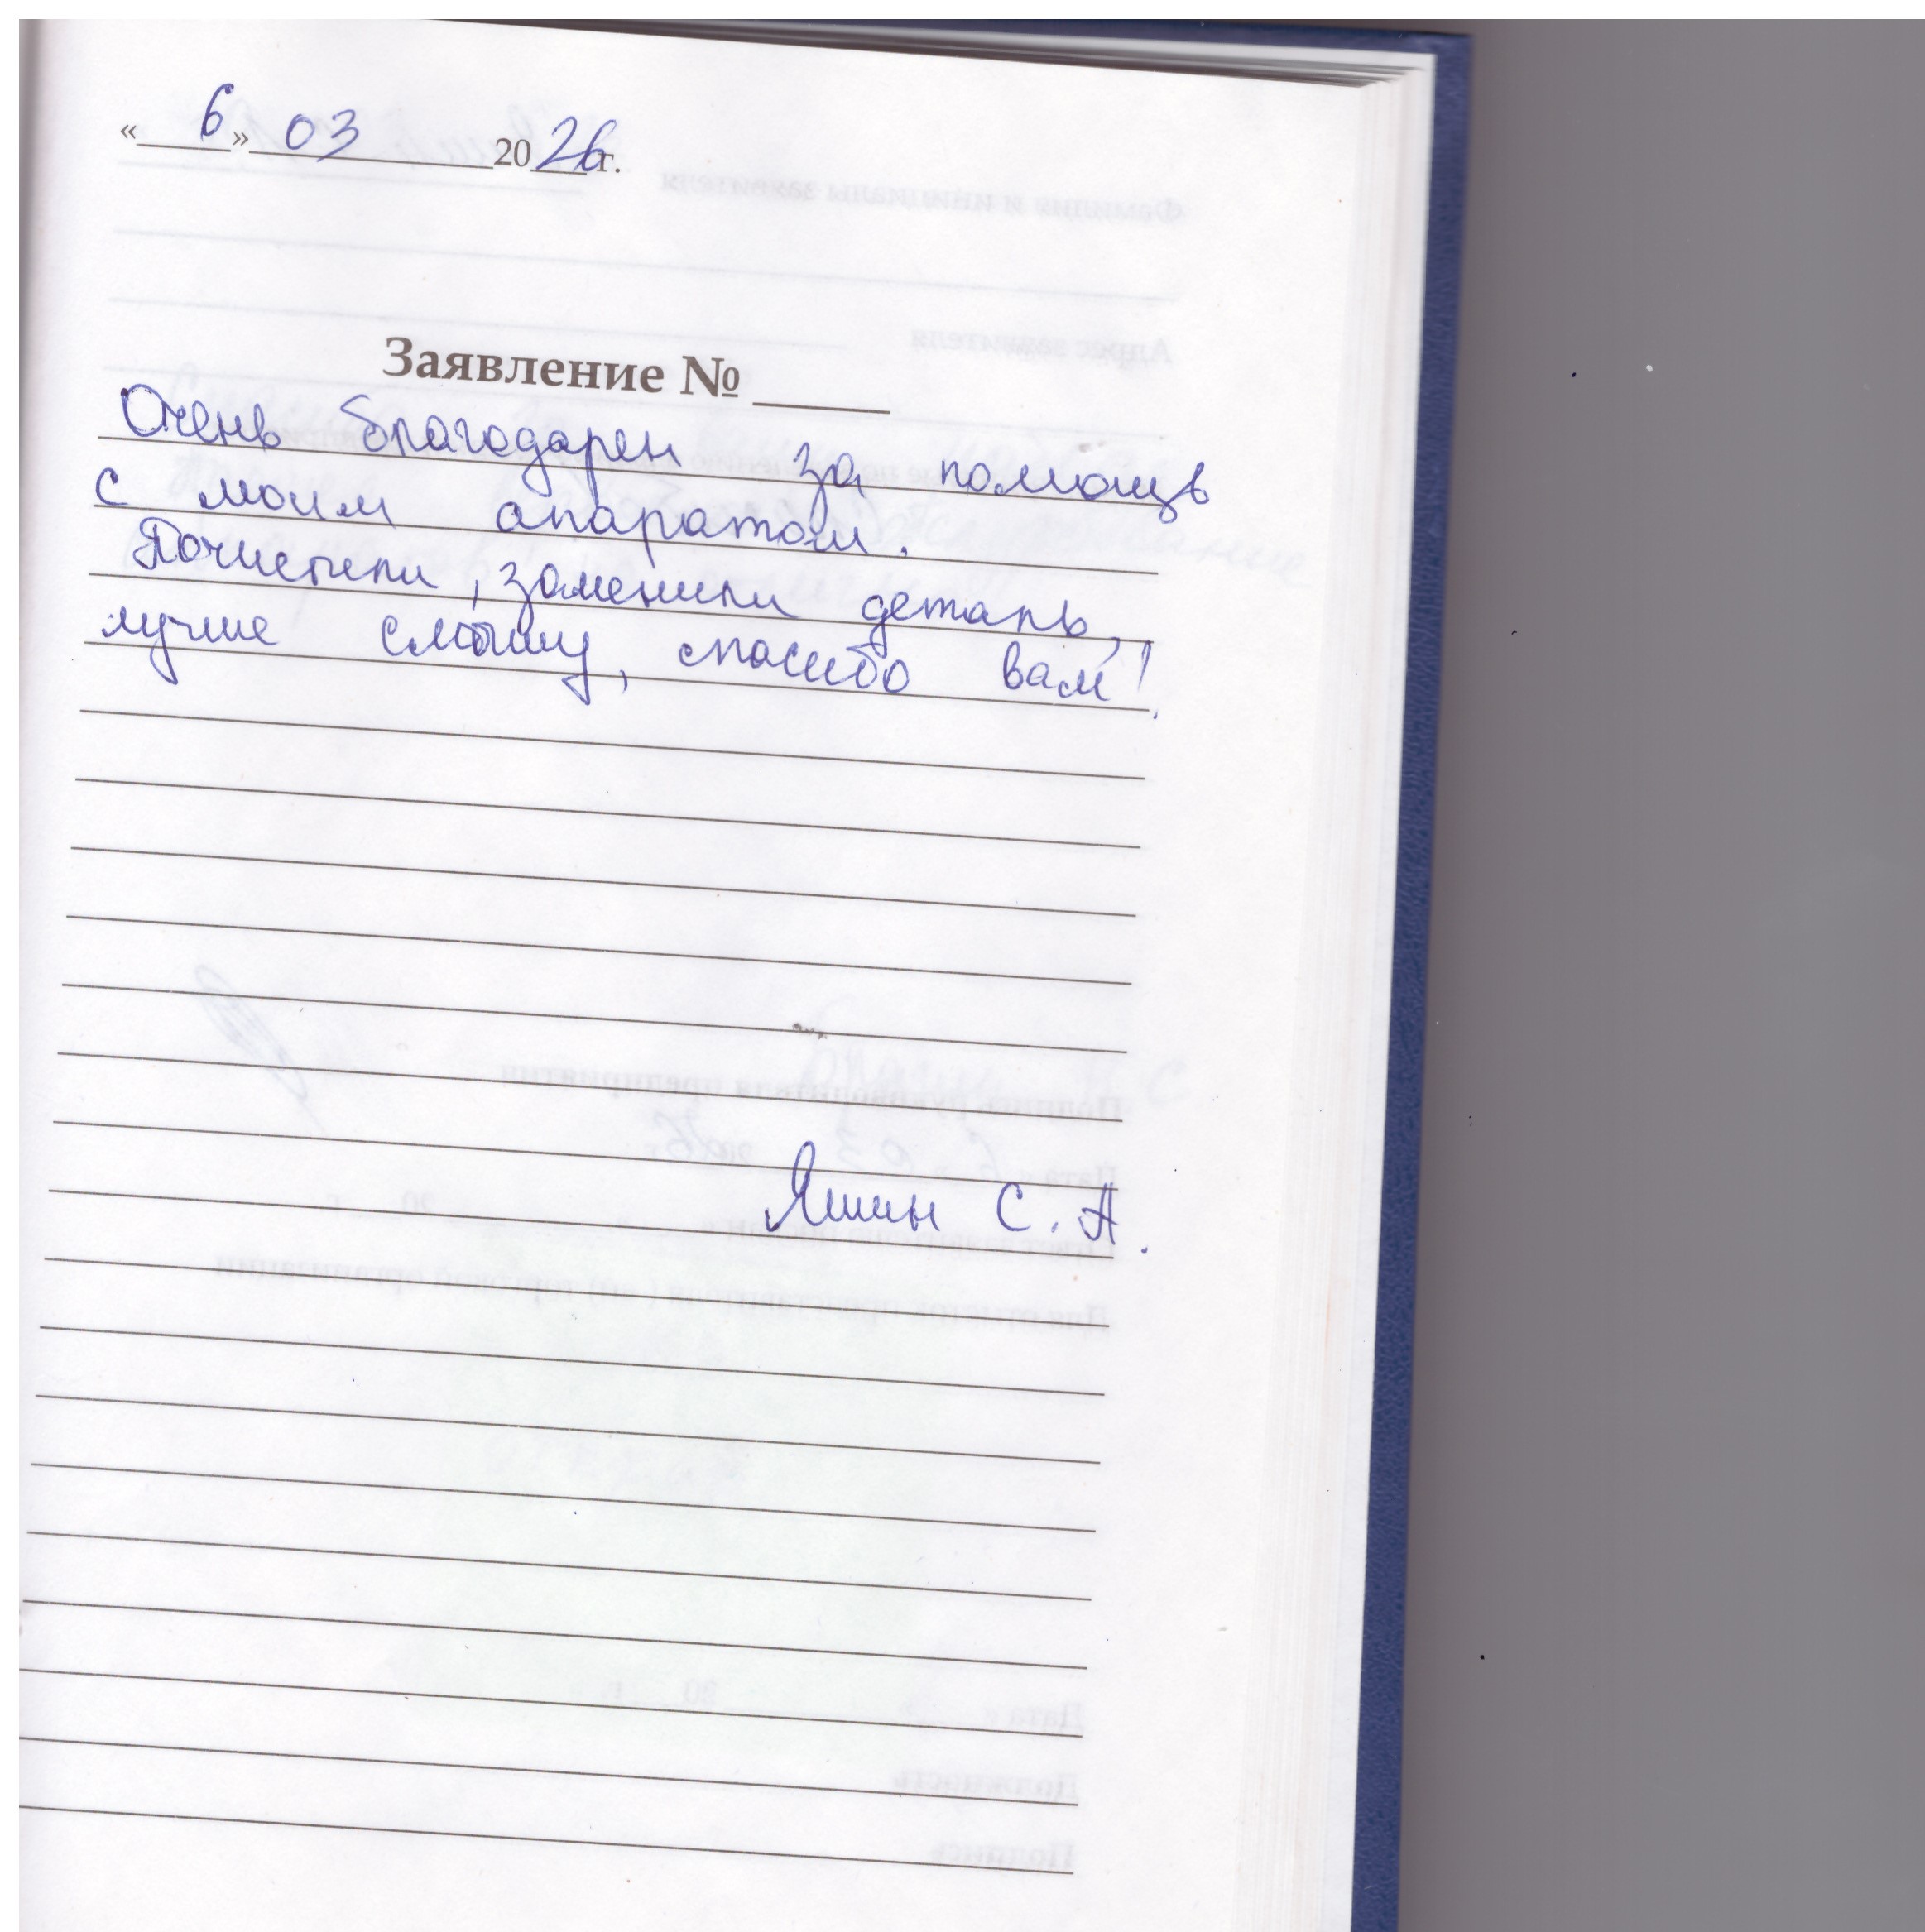 « 6 » 03 2026 г.
Заявление № ____
Очень благодарен за помощь
с моим апаратом.
Почистили, заменили деталь,
лучше слышу, спасибо вам!
Яшин С. А.